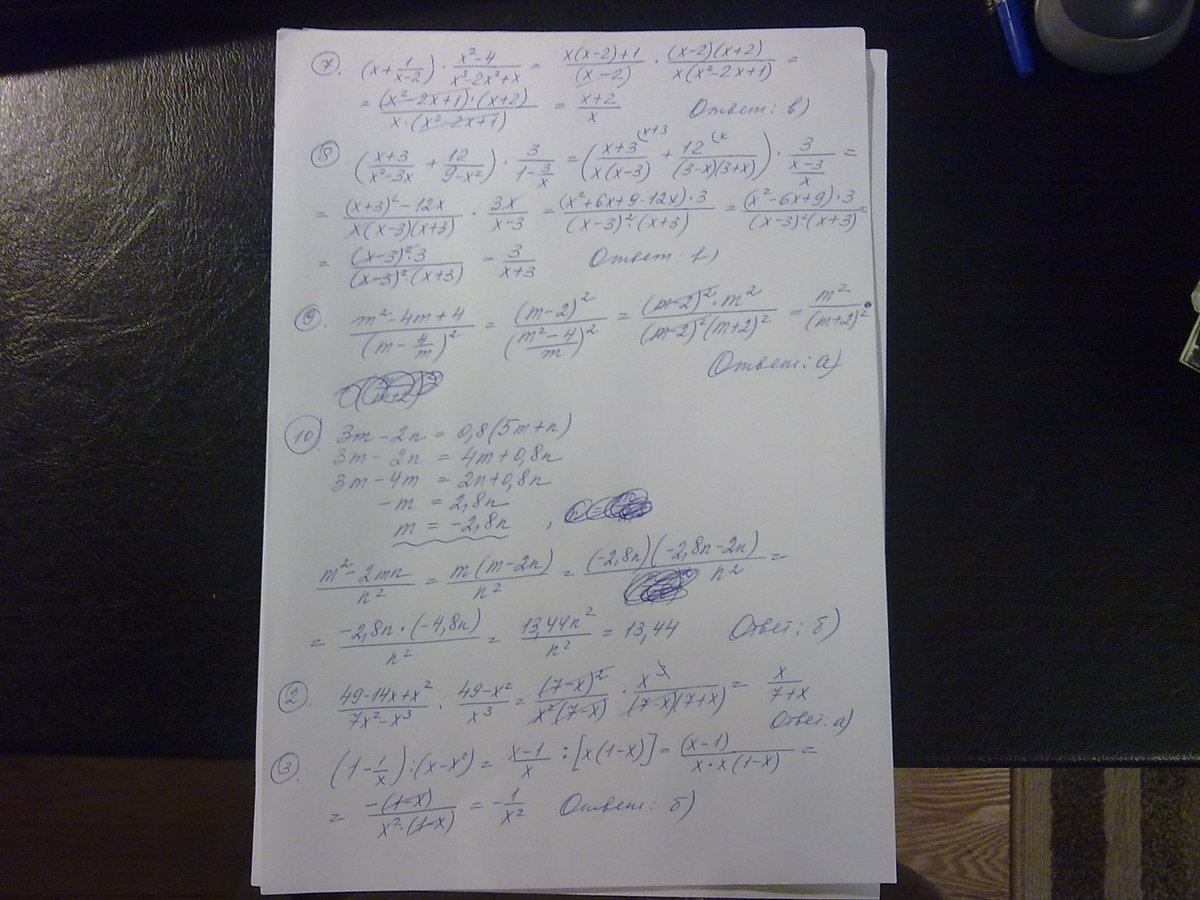 7. (x + 1/(x-2)) · (x²-4)/(x³-2x²+x) = (x(x-2)+1)/(x-2) · ((x-2)(x+2))/(x(x²-2x+1)) =
= ((x²-2x+1)·(x+2))/(x·(x²-2x+1)) = (x+2)/x Ответ: в)
8 ((x+3)/(x²-3x) + 12/(9-x²)) · 3/(1-3/x) = ((x+3)/(x(x-3)) (x+3 + 12/((3-x)(3+x)) (x) · 3/((x-3)/x) =
= ((x+3)²-12x)/(x(x-3)(x+3)) · 3·x/(x-3) = ((x²+6x+9-12x)·3)/((x-3)²·(x+3)) = ((x²-6x+9)·3)/((x-3)²(x+3)) =
= ((x-3)²·3)/((x-3)²(x+3)) = 3/(x+3) Ответ:
9. (m²-4m+4)/(m-4/m)² = (m-2)²/((m²-4)/m)² = ((m-2)²·m²)/((m-2)²(m+2)²) = m²/(m+2)².
Ответ: а)
10 3m-2n = 0,8(5m+n)
3m-2n = 4m+0,8n
3m-4m = 2n+0,8n
-m = 2,8n
m = -2,8n ,
(m²-2mn)/n² = (m(m-2n))/n² = ((-2,8n)(-2,8n-2n))/n² =
= (-2,8n·(-4,8n))/n² = 13,44n²/n² = 13,44 Ответ: б)
2. (49-14x+x²)/(7x²-x³) : (49-x²)/x³ = (7-x)²/(x²(7-x)) · x³/((7-x)(7+x)) = x/(7+x)
Ответ: а)
3. (1-1/x):(x-x²) = (x-1)/x : [x(1-x)] = (x-1)/(x·x(1-x)) =
= -(1-x)/(x²·(1-x)) = -1/x² Ответ: б)